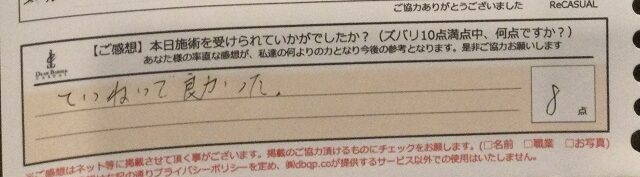 ご協力ありがとうございました ReCASUAL
【ご感想】本日施術を受けられていかがでしたか？（ズバリ10点満点中、何点ですか？）
あなた様の率直な感想が、私達の何よりの力となり今後の参考となります。是非ご協力お願いします
ていねいで良かった。
8点
※ご感想はネット等に掲載させて頂く事がございます。掲載のご協力頂けるものにチェックをお願します。（□名前 □職業 □お写真）
の通りプライバシーポリシーを定め、㈱dbqp.coが提供するサービス以外での使用はいたしません。